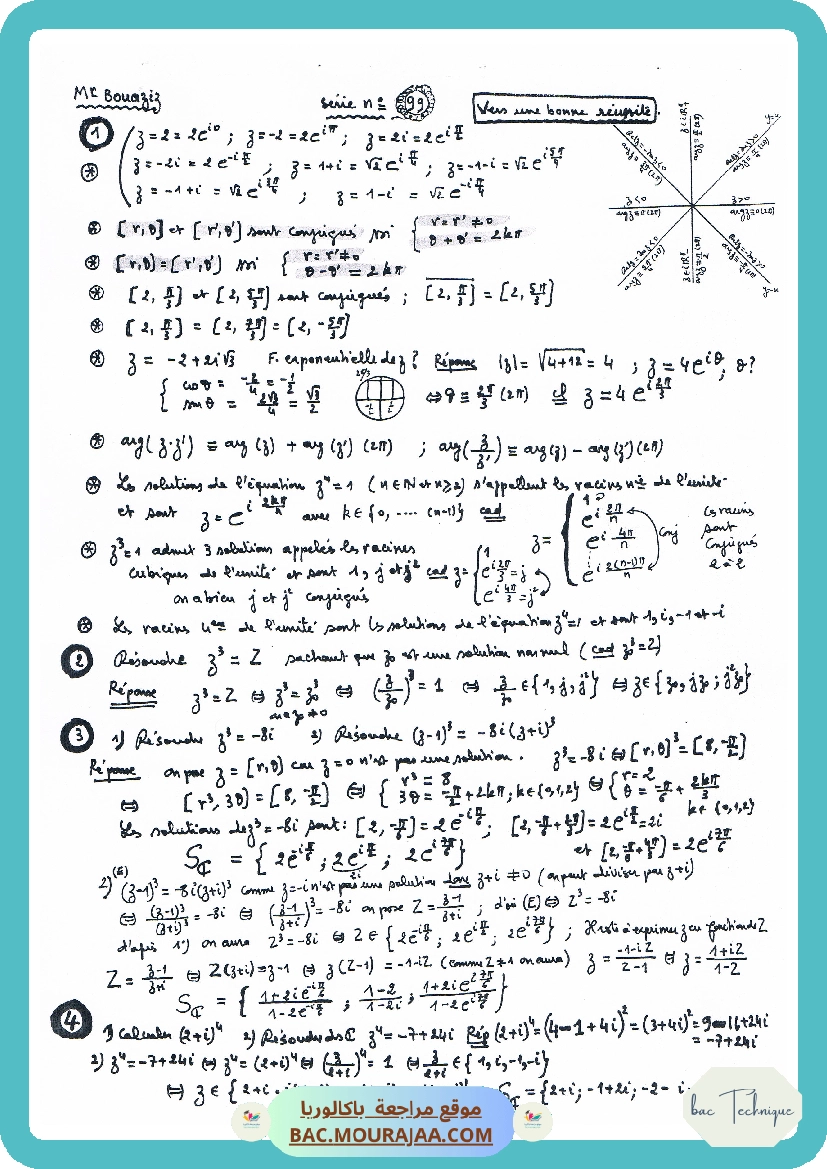 Mr Bouaziz
Série n° 99
Vers une bonne réussite.
1
z = 2 = 2e^{i0} ; z = -2 = 2e^{iπ} ; z = 2i = 2e^{iπ/2}
z = -2i = 2e^{-iπ/2} ; z = 1+i = √2 e^{iπ/4} ; z = -1-i = √2 e^{i5π/4}
z = -1+i = √2 e^{i3π/4} ; z = 1-i = √2 e^{-iπ/4}
z<0
z>0
[r,θ] et [r',θ'] sont conjugués ssi { r = r' ≠ 0 ; θ + θ' = 2kπ
[r,θ] = [r',θ'] ssi { r = r' ≠ 0 ; θ - θ' = 2kπ
[2, π/3] et [2, 5π/3] sont conjugués ; \overline{[2, π/3]} = [2, 5π/3]
[2, π/3] = [2, 7π/3] = [2, -5π/3]
z = -2+2i√3 F. exponentielle de z ? Réponse |z| = √(4+12) = 4 ; z = 4e^{iθ}, θ?
{ cosθ = -2/4 = -1/2 ; sinθ = 2√3/4 = √3/2 ⇔ θ ≡ 2π/3 (2π) cl z = 4 e^{i2π/3}
arg(z·z') ≡ arg(z) + arg(z') (2π) ; arg(z/z') ≡ arg(z) - arg(z') (2π)
Les solutions de l'équation z^n = 1 (n∈ℕ et n≥2) s'appellent les racines n^e de l'unité
et sont z = e^{i 2kπ/n} avec k∈{0, .... (n-1)} cad
z = { 1 ; e^{i 2π/n} ; e^{i 4π/n} ; e^{i 2(n-1)π/n} conj
Les racines sont conjugués 2 à 2
z³=1 admet 3 solutions appelés les racines
cubiques de l'unité et sont 1, j et j² cad z = { 1 ; e^{i2π/3} = j ; e^{i4π/3} = j²
on a bien j et j² conjugués
Les racines 4^{èmes} de l'unité sont les solutions de l'équation z⁴=1 et sont 1, i, -1 et -i
2 Résoudre z³ = Z sachant que z₀ est une solution non nul (cad z₀³ = Z)
Réponse z³ = Z ⇔ z³ = z₀³ ⇔ (z/z₀)³ = 1 ⇔ z/z₀ ∈ {1, j, j²} ⇔ z ∈ {z₀, jz₀, j²z₀}
3 1) Résoudre z³ = -8i 2) Résoudre (z-1)³ = -8i(z+i)³
Réponse on pose z = [r,θ] car z=0 n'est pas une solution. z³ = -8i ⇔ [r,θ]³ = [8, -π/2]
⇔ [r³, 3θ] = [8, -π/2] ⇔ { r³ = 8 ; 3θ = -π/2 + 2kπ ; k∈{0,1,2} ⇔ { r = 2 ; θ = -π/6 + 2kπ/3 k∈{0,1,2}
Les solutions de z³ = -8i sont : [2, -π/6] = 2e^{-iπ/6} ; [2, -π/6 + 2π/3] = 2e^{iπ/2} = 2i
et [2, -π/6 + 4π/3] = 2e^{i7π/6}
S_ℂ = { 2e^{-iπ/6} ; 2e^{iπ/2} ; 2e^{i7π/6} }
2i
2) (E) (z-1)³ = -8i(z+i)³ comme z=-i n'est pas une solution donc z+i ≠ 0 (on peut diviser par z+i)
⇔ (z-1)³/(z+i)³ = -8i ⇔ ((z-1)/(z+i))³ = -8i on pose Z = (z-1)/(z+i) ; d'où (E) ⇔ Z³ = -8i
d'après 1°) on aura Z³ = -8i ⇔ Z ∈ { 2e^{-iπ/6} ; 2e^{iπ/2} ; 2e^{i7π/6} } ; Il reste à exprimer z en fonction de Z
Z = (z-1)/(z+i) ⇔ Z(z+i) = z-1 ⇔ z(Z-1) = -1-iZ (comme Z≠1 on aura) z = (-1-iZ)/(Z-1) ⇔ z = (1+iZ)/(1-Z)
S_ℂ = { (1+2ie^{-iπ/6})/(1-2e^{-iπ/6}) ; (1-2)/(1-2i) ; (1+2ie^{i7π/6})/(1-2e^{i7π/6}) }
4 1) Calculer (2+i)⁴ 2) Résoudre ds ℂ z⁴ = -7+24i Rép (2+i)⁴ = (4-1+4i)² = (3+4i)² = 9-16+24i
= -7+24i
2) z⁴ = -7+24i ⇔ z⁴ = (2+i)⁴ ⇔ (z/(2+i))⁴ = 1 ⇔ z/(2+i) ∈ {1, i, -1, -i}
⇔ z ∈ { 2+i
S_ℂ = {2+i ; -1+2i ; -2-i
موقع مراجعة باكالوريا
BAC.MOURAJAA.COM
bac Technique